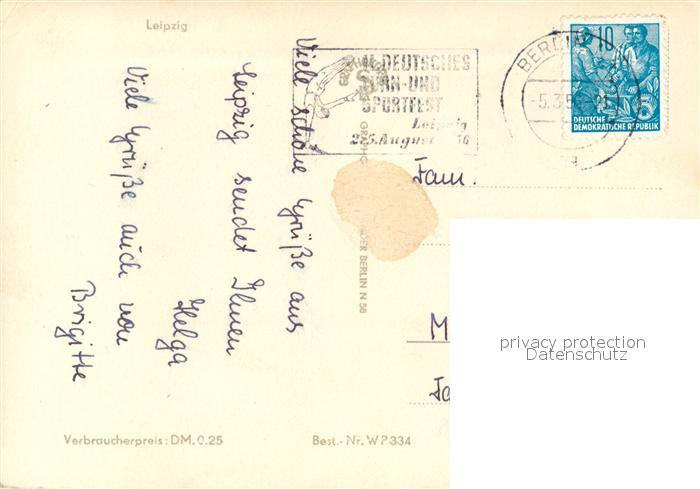 Leipzig
Viele schöne Grüße aus
Leipzig sendet Ihnen
Helga
Viele Grüße auch von
Brigitte
II. DEUTSCHES
TURN-UND
SPORTFEST
Leipzig
2.-5. August 56
BERLIN
-5.3.56
a
10
DEUTSCHE
DEMOKRATISCHE REPUBLIK
Fam.
M
BERLIN N 58
privacy protection
Datenschutz
Verbraucherpreis: DM. 0.25
Best.-Nr. WP334